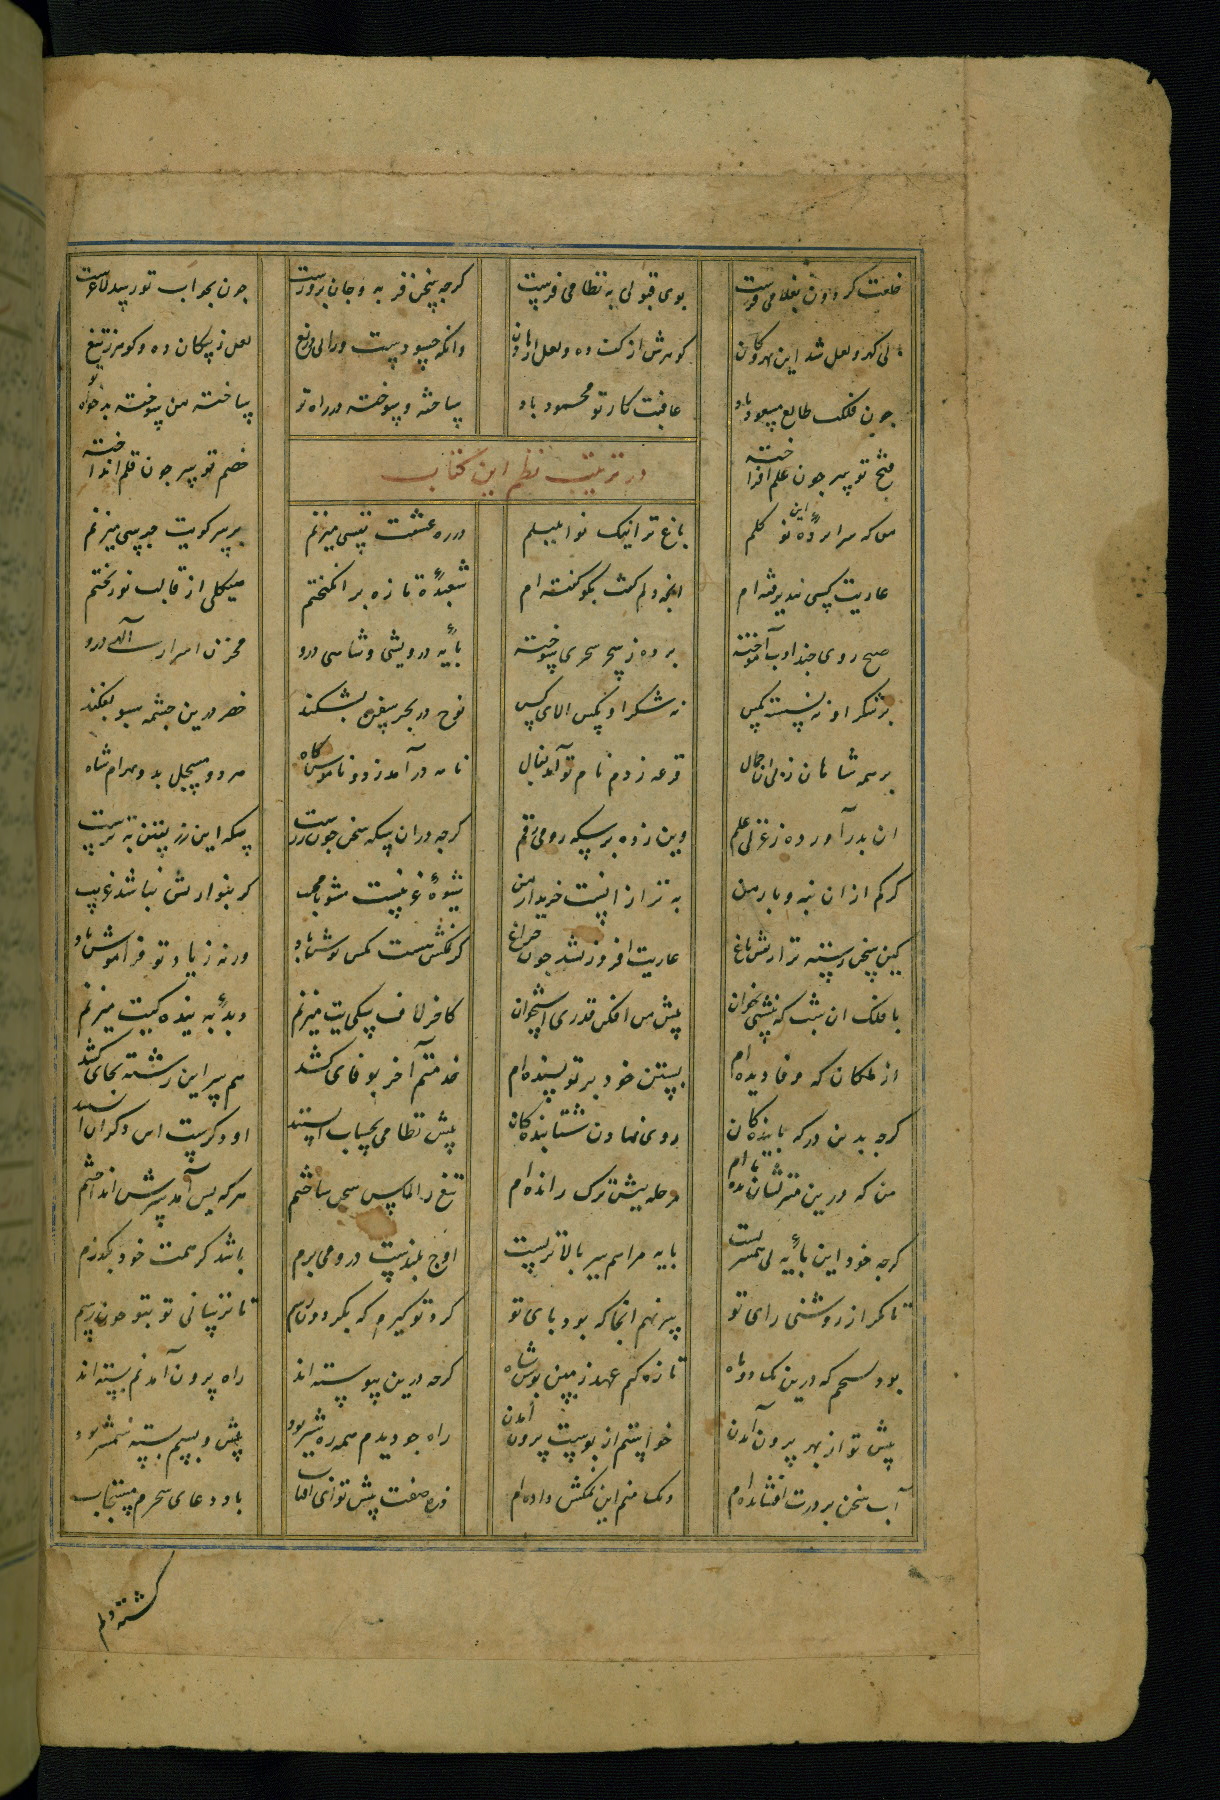 خلعت کردون بغلامی فرست بوی قبولی به نظامی فرست کرچه سخن فربه و جان پرورست چون بخوان تو رسید لاغرست
بی کهر و لعل شد این بهر و کان کوهرش از کف ده و لعل از دهان وانکه حسودست برو بی دریغ لعل ز پیکان ده و کوهر ز تیغ
چون فلکت طالع مسعود باد عاقبت کار تو محمود باد ساخته و سوخته در راه تو ساخته من سوخته بدخواه تو
فتح تو سر چون علم افراخته خصم تو سر چون قلم انداخته
در ترتیب نظم این کتاب
من که سراینده این نو کلم باغ ترا نیک نوا بلبلم در ره عشقت نفسی میزنم بر سر کویت جرسی میزنم
عاریت کسی نپذیرفته ام آنچه دلم گفت بکو گفته ام شعبدۀ تازه برانکیختم هیکلی از قالب نو ریختم
صبح روی چند ادب آموخته پرده ز سحر سحری دوخته پایه درویشی و شاهی درو مخزن اسرار الهی درو
بر شکر او ننشسته مکس نه مکس او شکر الای کس نوح درین بحر سپر بفکند خضر درین چشمه سبو بشکند
بر همه شاهان ز پی این جمال قرعه زدم نام تو آمد بفال نامه دو آمد ز دو ناموسگاه هر دو مسجل بدو بهرامشاه
آن بدر آورده ز غزنی علم وین زده بر سکه رومی رقم کرچه در آن سکه سخن چون زرست سکه این زر من ازان بهترست
کر کم ازان شد بنه و بار من بهتر ازانست خریدار من شیوه غریبست مشو نامجیب کر بنوازیش نباشد غریب
کین سخن رسته تر از نقش باغ عاریت افروز نشد چون چراغ کر نمکش هست بکس نوش باد ورنه ز یاد تو فراموش باد
با فلک آن شب که نشینی بخوان پیش من افکن قدری استخوان کاخر لاف سگیت میزنم دبدبه بندگیت میزنم
از ملکان که وفا دیده ام بستن خود بر تو پسندیده ام خدمتم آخر بوفایی کشد هم سر این رشته بجایی کشد
کرچه بدین درگه پایندگان روی نهادند ستایندگان پیش نظامی بحساب ایستند او دکرست این دکران کیستند
من که درین منزلشان مانده ام مرحله پیشترک رانده ام تیغ ز الماس سخن ساختم هر که پس آمد سرش انداختم
کرچه خود این پایه بی همسریست پایه مرا هم سر بالاتریست اوج بلندست درو می پرم باشد کز همت خود بگذرم
تا مگر از روشنی رای تو سر نهم آنجا که بود پای تو گرد تو کیرم که بگردون رسم تا نرسانی تو بتو چون رسم
بود بسیجم که درین یک دو ماه تازه کنم عهد زمین بوس شاه کرچه درین پیوسته اند راه برون آمدنم بسته اند
پیش تو از بهر برون آمدن خواستم از پوست برون آمدن راه چو دیدم همه ره شیر بود پیش و پسم بسته شمشیر بود
آب سخن بر درت افشانده ام ریک منم این که بجا مانده ام ذره صفت پیش تو ای آفتاب باد دعای سحرم مستجاب
گشته دلم